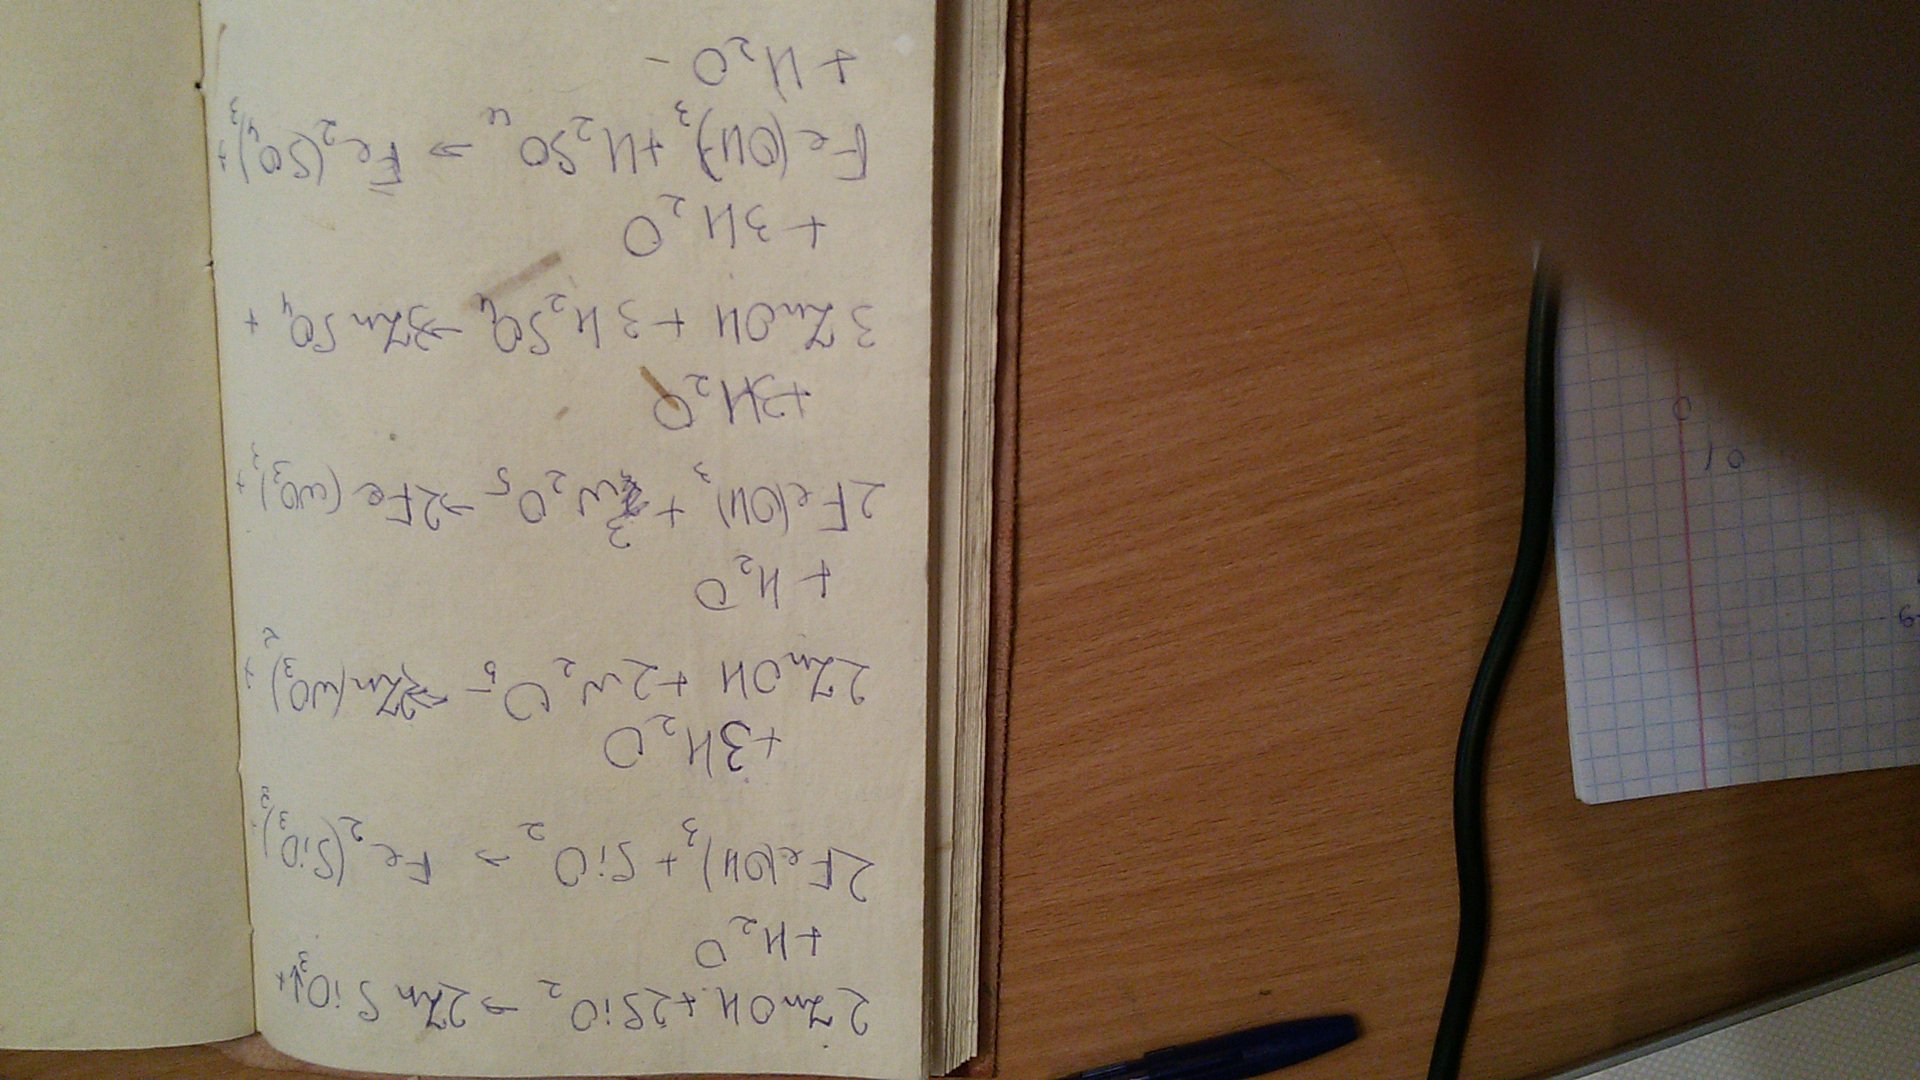 2ZnOH+2SiO₂ → 2ZnSiO₃↓+
+H₂O
2Fe(OH)₃+SiO₂ → Fe₂(SiO₃)₃
+3H₂O
2ZnOH+2W₂O₅ → 2Zn(WO₃)₂+
+H₂O
2Fe(OH)₃+3W₂O₅ → 2Fe(WO₃)₃+
+3H₂O
3ZnOH+3H₂SO₄ → 3ZnSO₄+
+3H₂O
Fe(OH)₃+H₂SO₄ → Fe₂(SO₄)₃+
+H₂O-